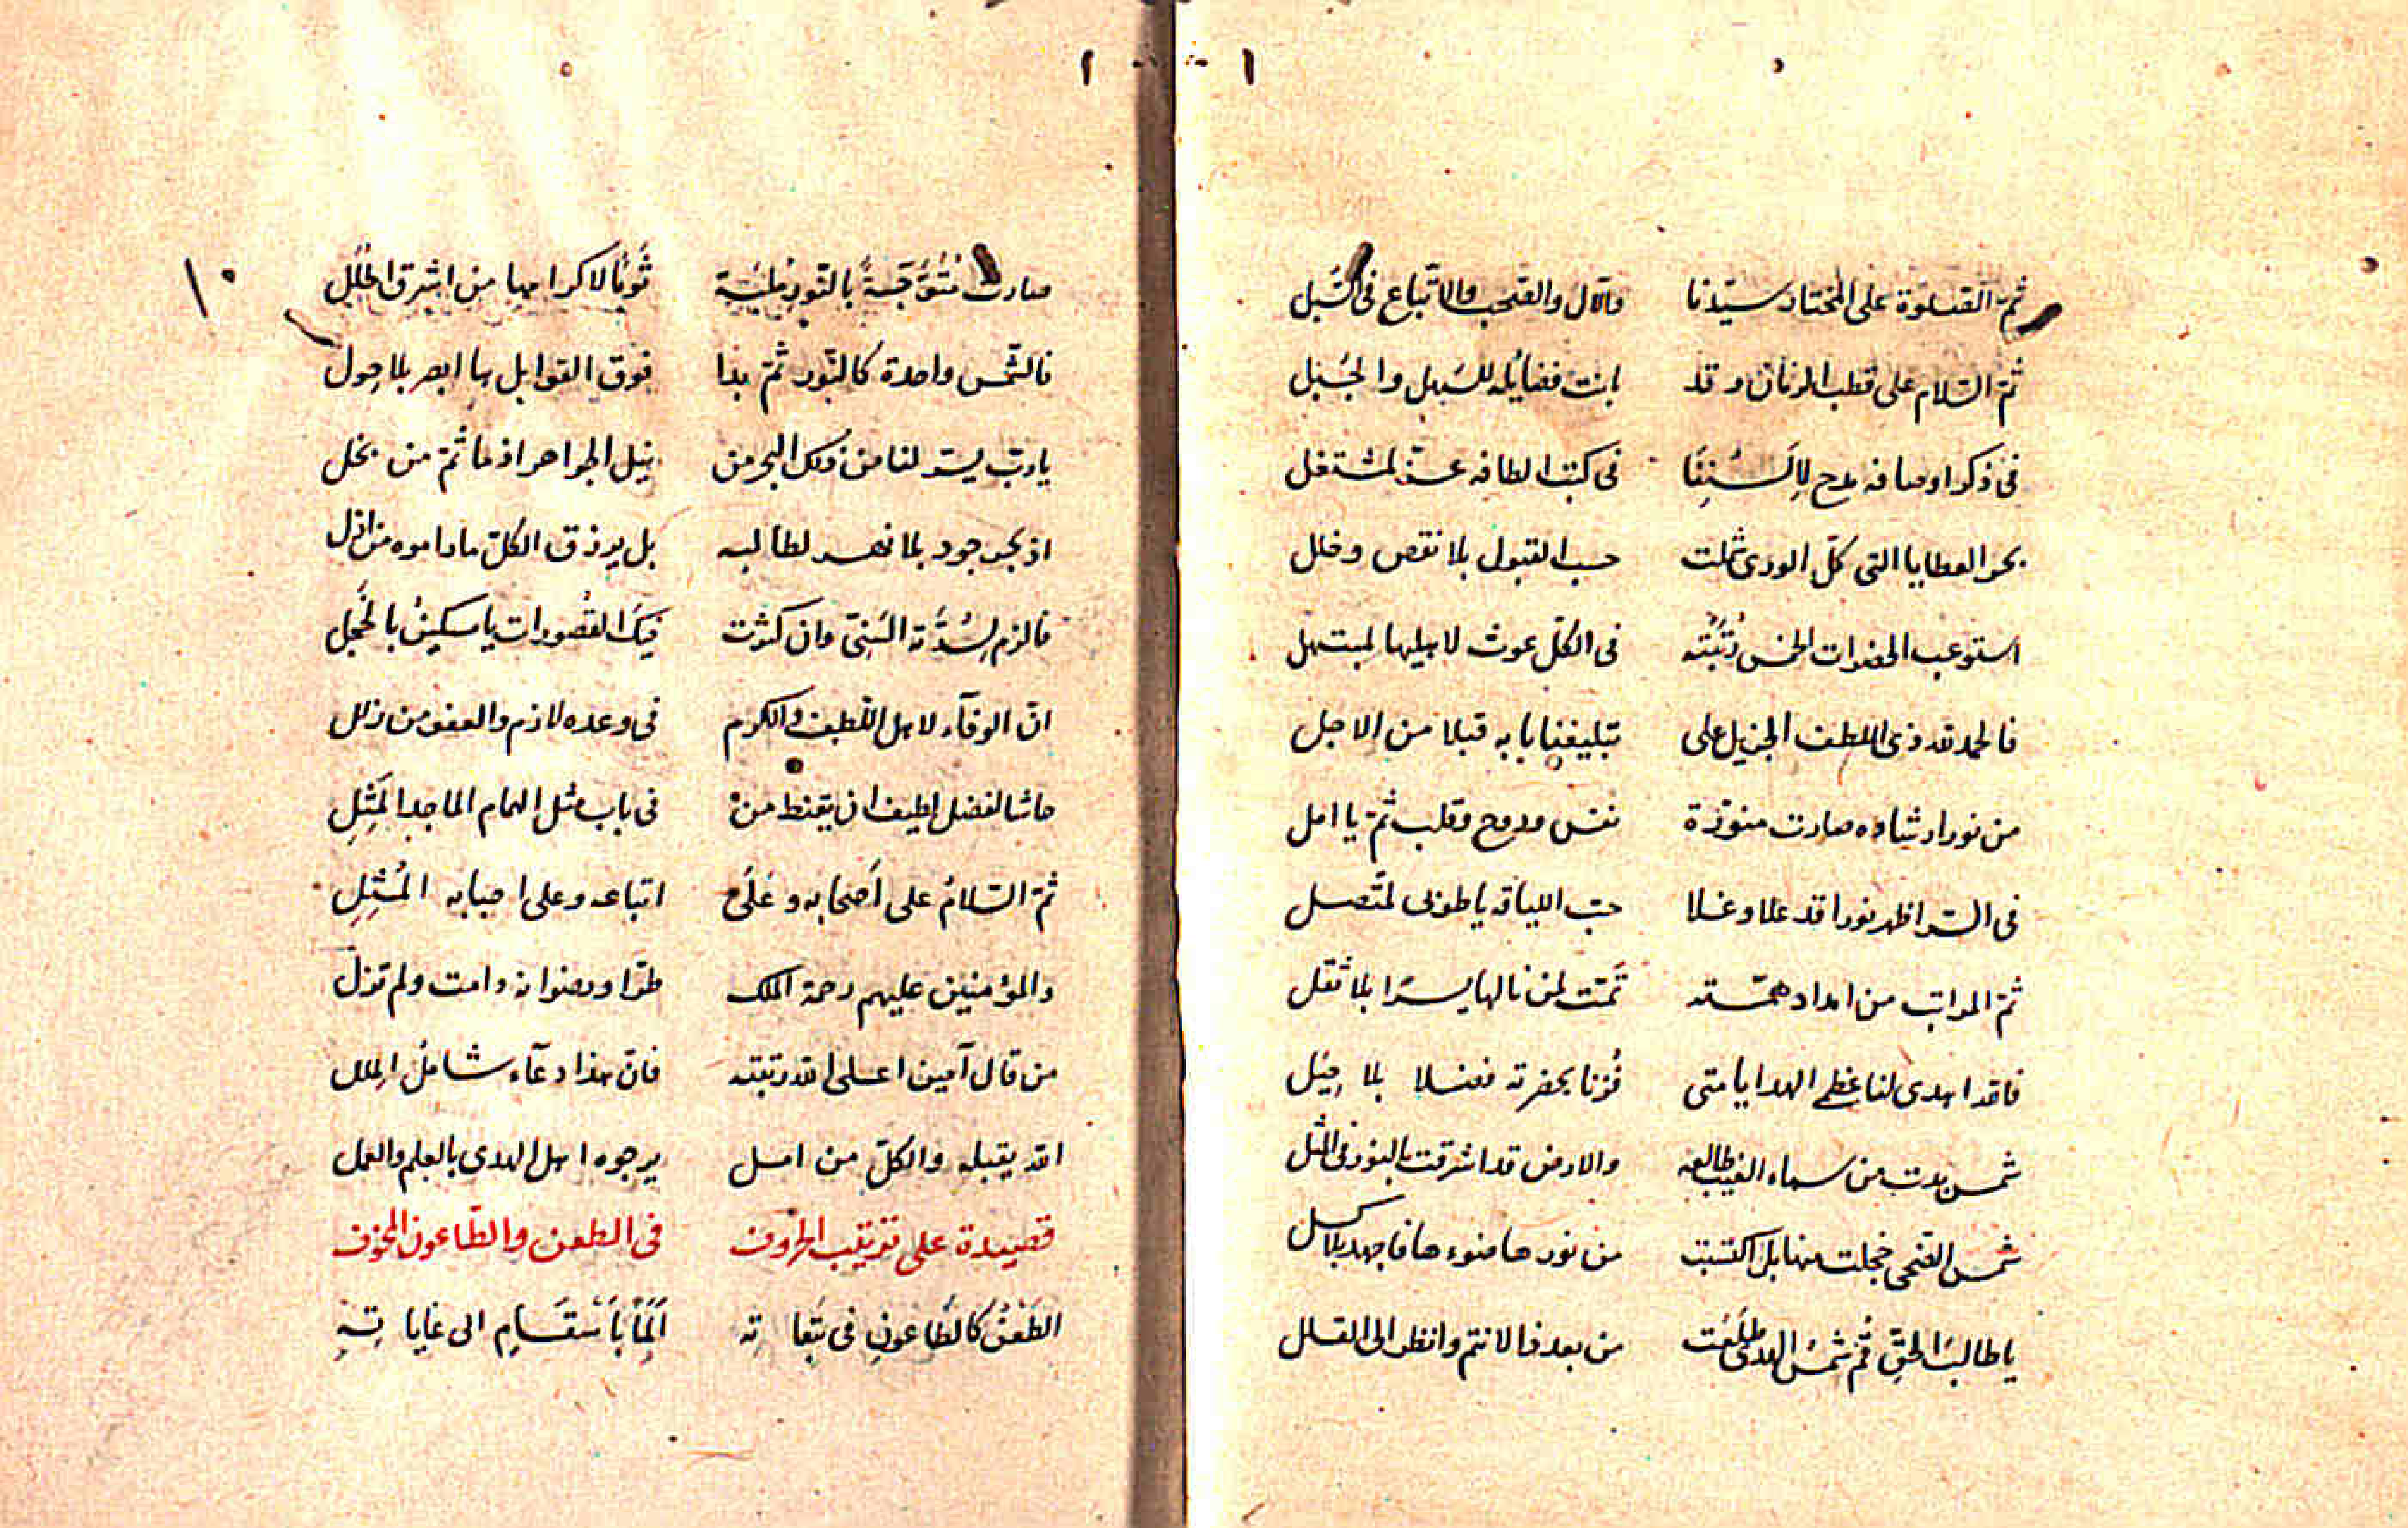 ثمّ الصّلوة على المختار سيّدنا والآل والصّحب والاتّباع فى السُّبل
ثمّ السّلام على قطب الزمان وقد بانت فضايله للسَهل والجَبَل
فى ذكر اوصافه مدح لِاَلسُنِنَا فى كتب الطافه عزّ لمشتغل
بحر العطايا التى كلّ الورى شملت حسب القبول بلا نقص وخلل
استوعب الحضرات الخمس رُتبَتُه فى الكلّ غوث لاهليها لمبتهل
فالحمد لله ذى اللطف الجزيل على تبليغنا بابه قبلا من الاجل
من نور ارشاده صارت منوّرة نفس وروح وقلب ثمّ يا امل
فى السّر اظهر نورا قد علا وغلا حسب اللياقة يا طوبى لمتّصل
ثمّ المراتب من امداد همّته تمّت لمن نالها يسرا بلا ثقل
فاقد اهدى لنا عظمى الهدايا متى فُزنا بحضرته فضلا بلا حِيَل
شمس بدت من سماء الغيب طالعه والارض قد اشرقت بالنور فى المثل
شمس الضّحى خجلت منها بل اكتسبت من نورها ضوءها فاجهد بلا كسل
يا طالبَ الحقِّ قُم شمسُ الهدى طَلَعَت من بعد ذا لا تنم وانظر الى القلل
صارت مُتَوَّجَةً بالنّور مُلبَسَة ثَوبًا لاكرامها من اشرق الحُلَل
فالشّمس واحدة كالنّور ثمّ بدا فوق القوابل ها ابصر بلا حول
يا ربّ يسّر لنا من ذلك البحر من نيل الجواهر اذ ما ثمّ من بخل
اذ بحر جود بلا نهر لطالبه بل يرزق الكلّ ما داموه من ازل
فالزم لِسُدَّته السَّنىّ وان كثرت فيكَ القُصورات يا مسكينُ بالخَجَل
انّ الوفآء لاهل اللّطف والكرم فى وعده لازم والعفو من زلل
حاشا لفضل لطيف ان يقنط من فى باب مثل الهمام الماجد المَثِلِ
ثمّ السّلامُ على اَصحابه وعَلَى اتباعه وعلى احبابه المُثُلِ
والمؤمنين عليهم رحمة الملك طرّا ورضوانه دامت ولم تزل
من قال آمين اعلى الله رتبته فانّ هذا دعآء شاملُ المِلل
الله يقبله والكلّ من امل يرجوه اهل الهدى بالعلم والعمل
قصيدة على ترتيب الحروف فى الطعن والطّاعون المخوف
الطَعْنُ كالطّاعونِ فى تَبِعاتِهِ اَلَمًا بِاَسْقَامِ الى غاياتِهِ
١٠